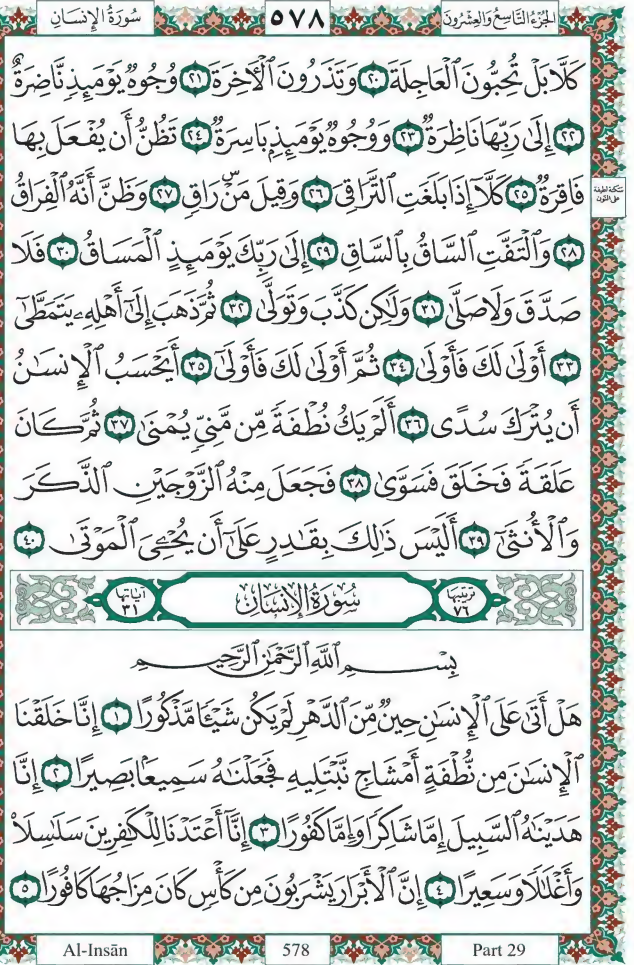 سُورَةُ الإِنسَانِ ٥٧٨ الجُزْءُ التَّاسِعُ وَالعِشْرُونَ
كَلَّا بَلْ تُحِبُّونَ ٱلْعَاجِلَةَ ٢٠ وَتَذَرُونَ ٱلْأٓخِرَةَ ٢١ وُجُوهٌ يَوْمَئِذٍ نَّاضِرَةٌ
٢٢ إِلَىٰ رَبِّهَا نَاظِرَةٌ ٢٣ وَوُجُوهٌ يَوْمَئِذٍۭ بَاسِرَةٌ ٢٤ تَظُنُّ أَن يُفْعَلَ بِهَا
فَاقِرَةٌ ٢٥ كَلَّآ إِذَا بَلَغَتِ ٱلتَّرَاقِيَ ٢٦ وَقِيلَ مَنْۜ رَاقٍ ٢٧ وَظَنَّ أَنَّهُ ٱلْفِرَاقُ
سكتة لطيفة
على النون
٢٨ وَٱلْتَفَّتِ ٱلسَّاقُ بِٱلسَّاقِ ٢٩ إِلَىٰ رَبِّكَ يَوْمَئِذٍ ٱلْمَسَاقُ ٣٠ فَلَا
صَدَّقَ وَلَا صَلَّىٰ ٣١ وَلَٰكِن كَذَّبَ وَتَوَلَّىٰ ٣٢ ثُمَّ ذَهَبَ إِلَىٰٓ أَهْلِهِۦ يَتَمَطَّىٰٓ
٣٣ أَوْلَىٰ لَكَ فَأَوْلَىٰ ٣٤ ثُمَّ أَوْلَىٰ لَكَ فَأَوْلَىٰٓ ٣٥ أَيَحْسَبُ ٱلْإِنسَٰنُ
أَن يُتْرَكَ سُدًى ٣٦ أَلَمْ يَكُ نُطْفَةً مِّن مَّنِىٍّ يُمْنَىٰ ٣٧ ثُمَّ كَانَ
عَلَقَةً فَخَلَقَ فَسَوَّىٰ ٣٨ فَجَعَلَ مِنْهُ ٱلزَّوْجَيْنِ ٱلذَّكَرَ
وَٱلْأُنثَىٰٓ ٣٩ أَلَيْسَ ذَٰلِكَ بِقَٰدِرٍ عَلَىٰٓ أَن يُحْـِۧىَ ٱلْمَوْتَىٰ ٤٠
ترتيبها ٧٦ سُورَةُ الإِنسَانِ آياتها ٣١
بِسْمِ ٱللَّهِ ٱلرَّحْمَٰنِ ٱلرَّحِيمِ
هَلْ أَتَىٰ عَلَى ٱلْإِنسَٰنِ حِينٌ مِّنَ ٱلدَّهْرِ لَمْ يَكُن شَيْـًٔا مَّذْكُورًا ١ إِنَّا خَلَقْنَا
ٱلْإِنسَٰنَ مِن نُّطْفَةٍ أَمْشَاجٍ نَّبْتَلِيهِ فَجَعَلْنَٰهُ سَمِيعًۢا بَصِيرًا ٢ إِنَّا
هَدَيْنَٰهُ ٱلسَّبِيلَ إِمَّا شَاكِرًا وَإِمَّا كَفُورًا ٣ إِنَّآ أَعْتَدْنَا لِلْكَٰفِرِينَ سَلَٰسِلَا۟
وَأَغْلَٰلًا وَسَعِيرًا ٤ إِنَّ ٱلْأَبْرَارَ يَشْرَبُونَ مِن كَأْسٍ كَانَ مِزَاجُهَا كَافُورًا ٥
Al-Insān 578 Part 29